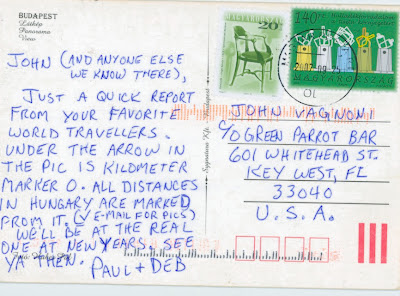 BUDAPEST
Látkép
Panorama
View
JOHN (AND ANYONE ELSE
WE KNOW THERE),
JUST A QUICK REPORT
FROM YOUR FAVORITE
WORLD TRAVELLERS.
UNDER THE ARROW IN
THE PIC IS KILOMETER
MARKER 0. ALL DISTANCES
IN HUNGARY ARE MARKED
FROM IT. (✓ E-MAIL FOR PICS)
WE'LL BE AT THE REAL
ONE AT NEW YEARS. SEE
YA THEN. PAUL + DEB
MAGYARORSZÁG
20
140
MAGYARORSZÁG
JOHN VAGNONI
C/O GREEN PARROT BAR
601 WHITEHEAD ST.
KEY WEST, FL
33040
U.S.A.